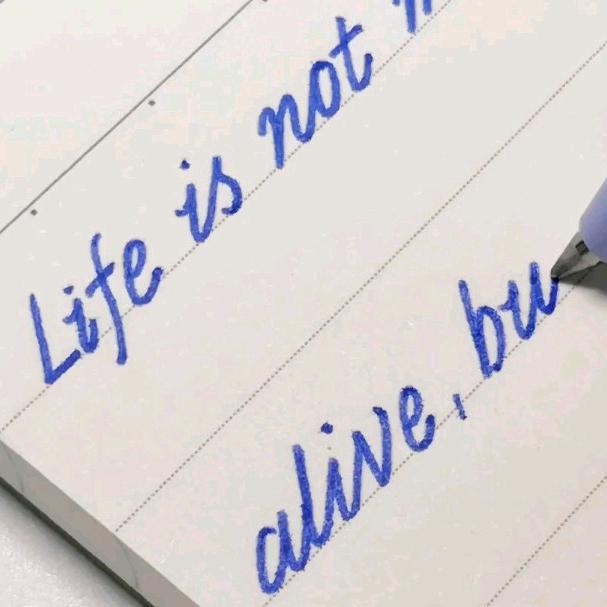 Life is not
alive, bu